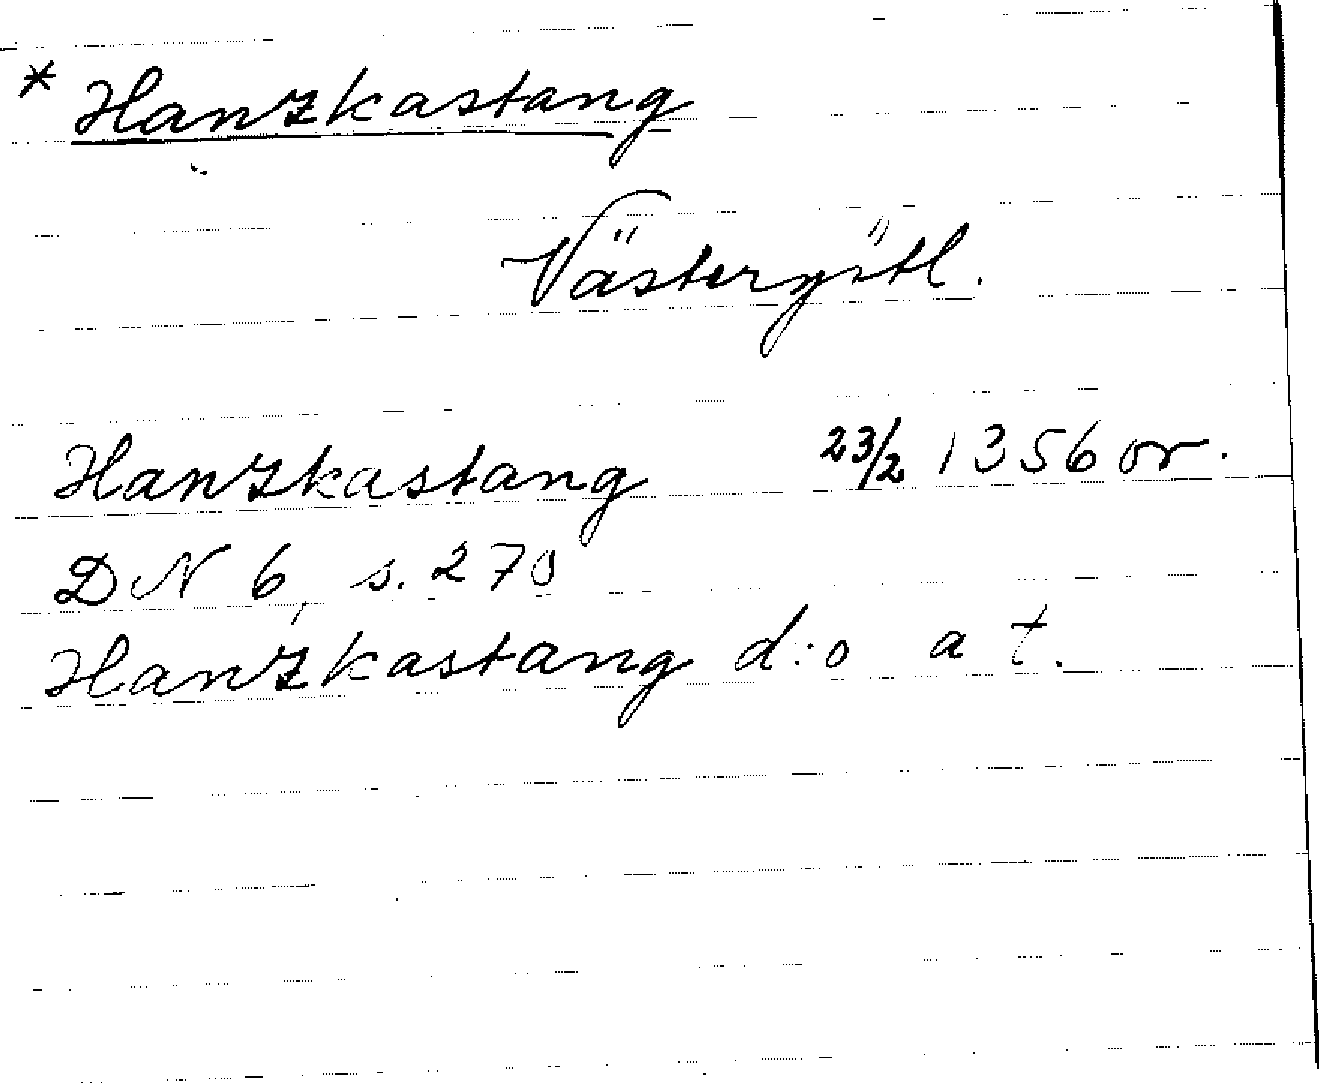 * Hanzkastang
Västergötl.
Hanzkastang 23/2 1356 or.
DN 6, s. 270
Hanzkastang d:o a t.